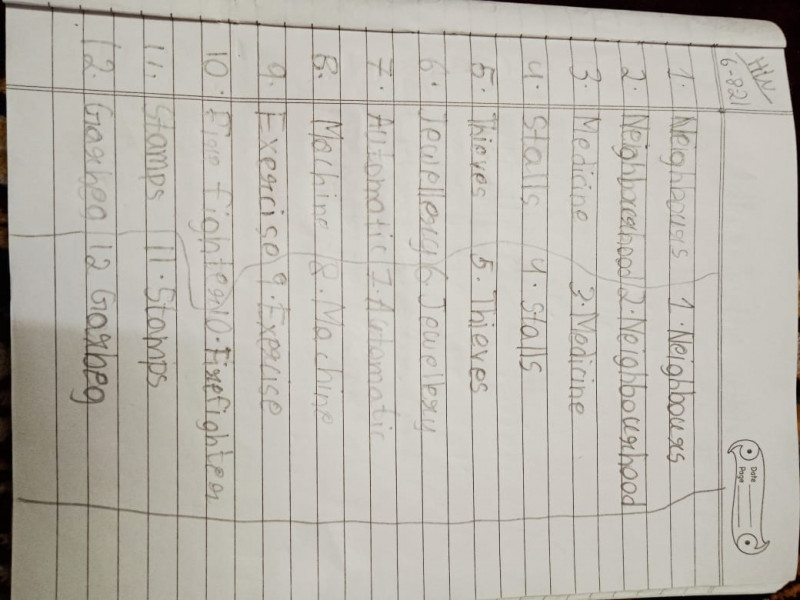 H/W
6-821
Date
Page
1. Neighbours 1. Neighbours
2. Neighbourhood 2. Neighbourhood
3. Medicine 3. Medicine
4. Stalls 4. Stalls
5. Thieves 5. Thieves
6. Jewellery 6. Jewellery
7. Automatic 7. Automatic
8. Machine 8. Machine
9. Exercise 9. Exercise
10. Fire fighter 10. Firefighter
11. Stamps 11. Stamps
12. Garbeg 12 Garbeg